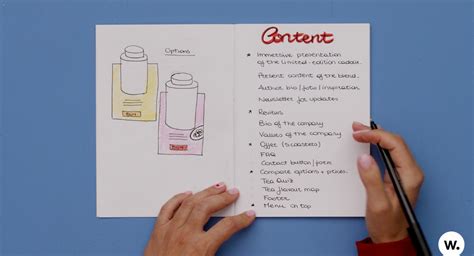 Options
Buy!
Buy!
Content
* Immersive presentation
of the limited-edition
Present content of the brand.
Author bio/foto/inspiration
Newsletter for updates
* Reviews
Bio of the company
Values of the company
* Offer (5 coasters)
FAQ
Contact button/form.
* Compare options + prices.
Tea Quiz
Tea flavour map
Footer
* Menu on top
w.